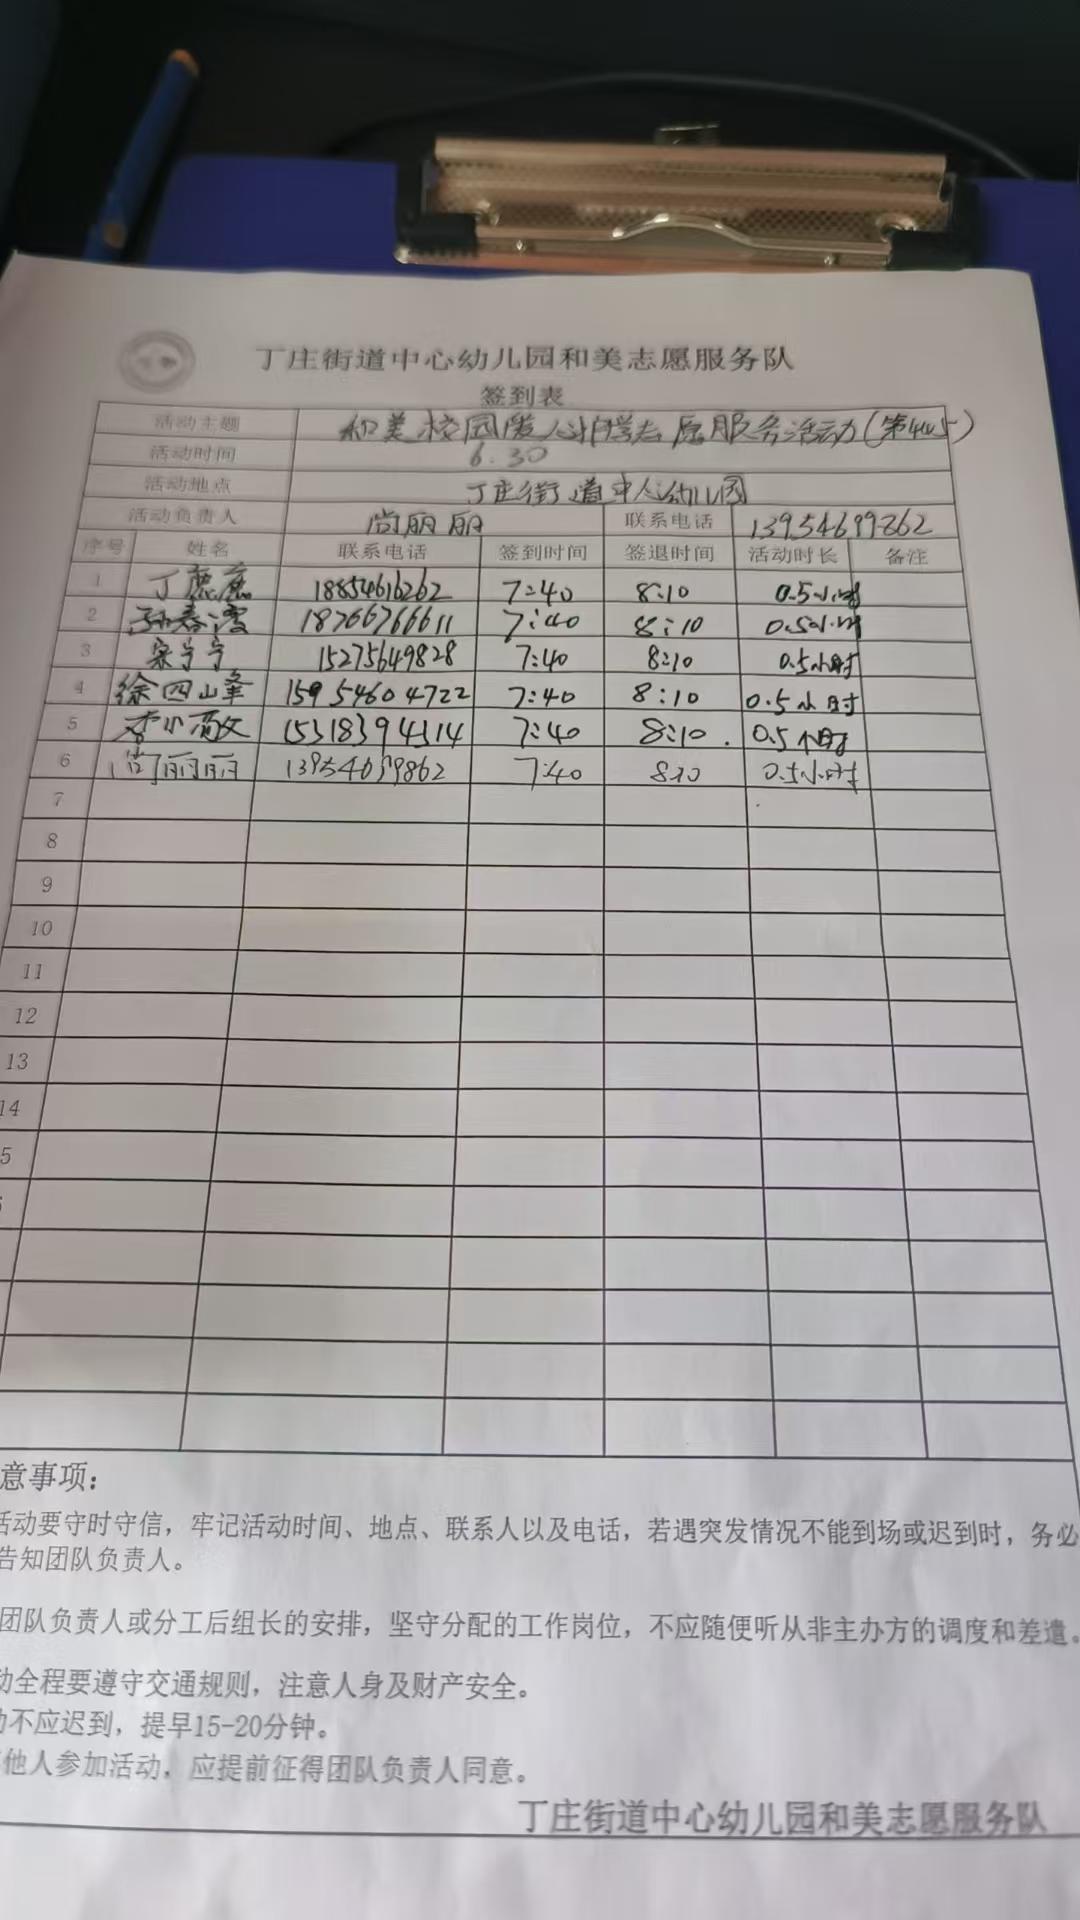 丁庄街道中心幼儿园和美志愿服务队
签到表
活动主题 和美校园暖人心 助学志愿服务活动(第445)
活动时间 6.30
活动地点 丁庄街道中心幼儿园
活动负责人 尚丽丽 联系电话 13954699862
序号 姓名 联系电话 签到时间 签退时间 活动时长 备注
1 丁 18854616262 7:40 8:10 0.5小时
2 孙春 18766766611 7:40 8:10 0.5小时
3 宋宁宁 15275649828 7:40 8:10 0.5小时
4 徐四山峰 15954604722 7:40 8:10 0.5小时
5 李小敏 15318394314 7:40 8:10. 0.5小时
6 尚丽丽 13954699862 7:40 8:10 0.5小时
7
8
9
10
11
12
13
14
5
意事项：
活动要守时守信，牢记活动时间、地点、联系人以及电话，若遇突发情况不能到场或迟到时，务必
告知团队负责人。
团队负责人或分工后组长的安排，坚守分配的工作岗位，不应随便听从非主办方的调度和差遣。
动全程要遵守交通规则，注意人身及财产安全。
动不应迟到，提早15-20分钟。
他人参加活动，应提前征得团队负责人同意。
丁庄街道中心幼儿园和美志愿服务队